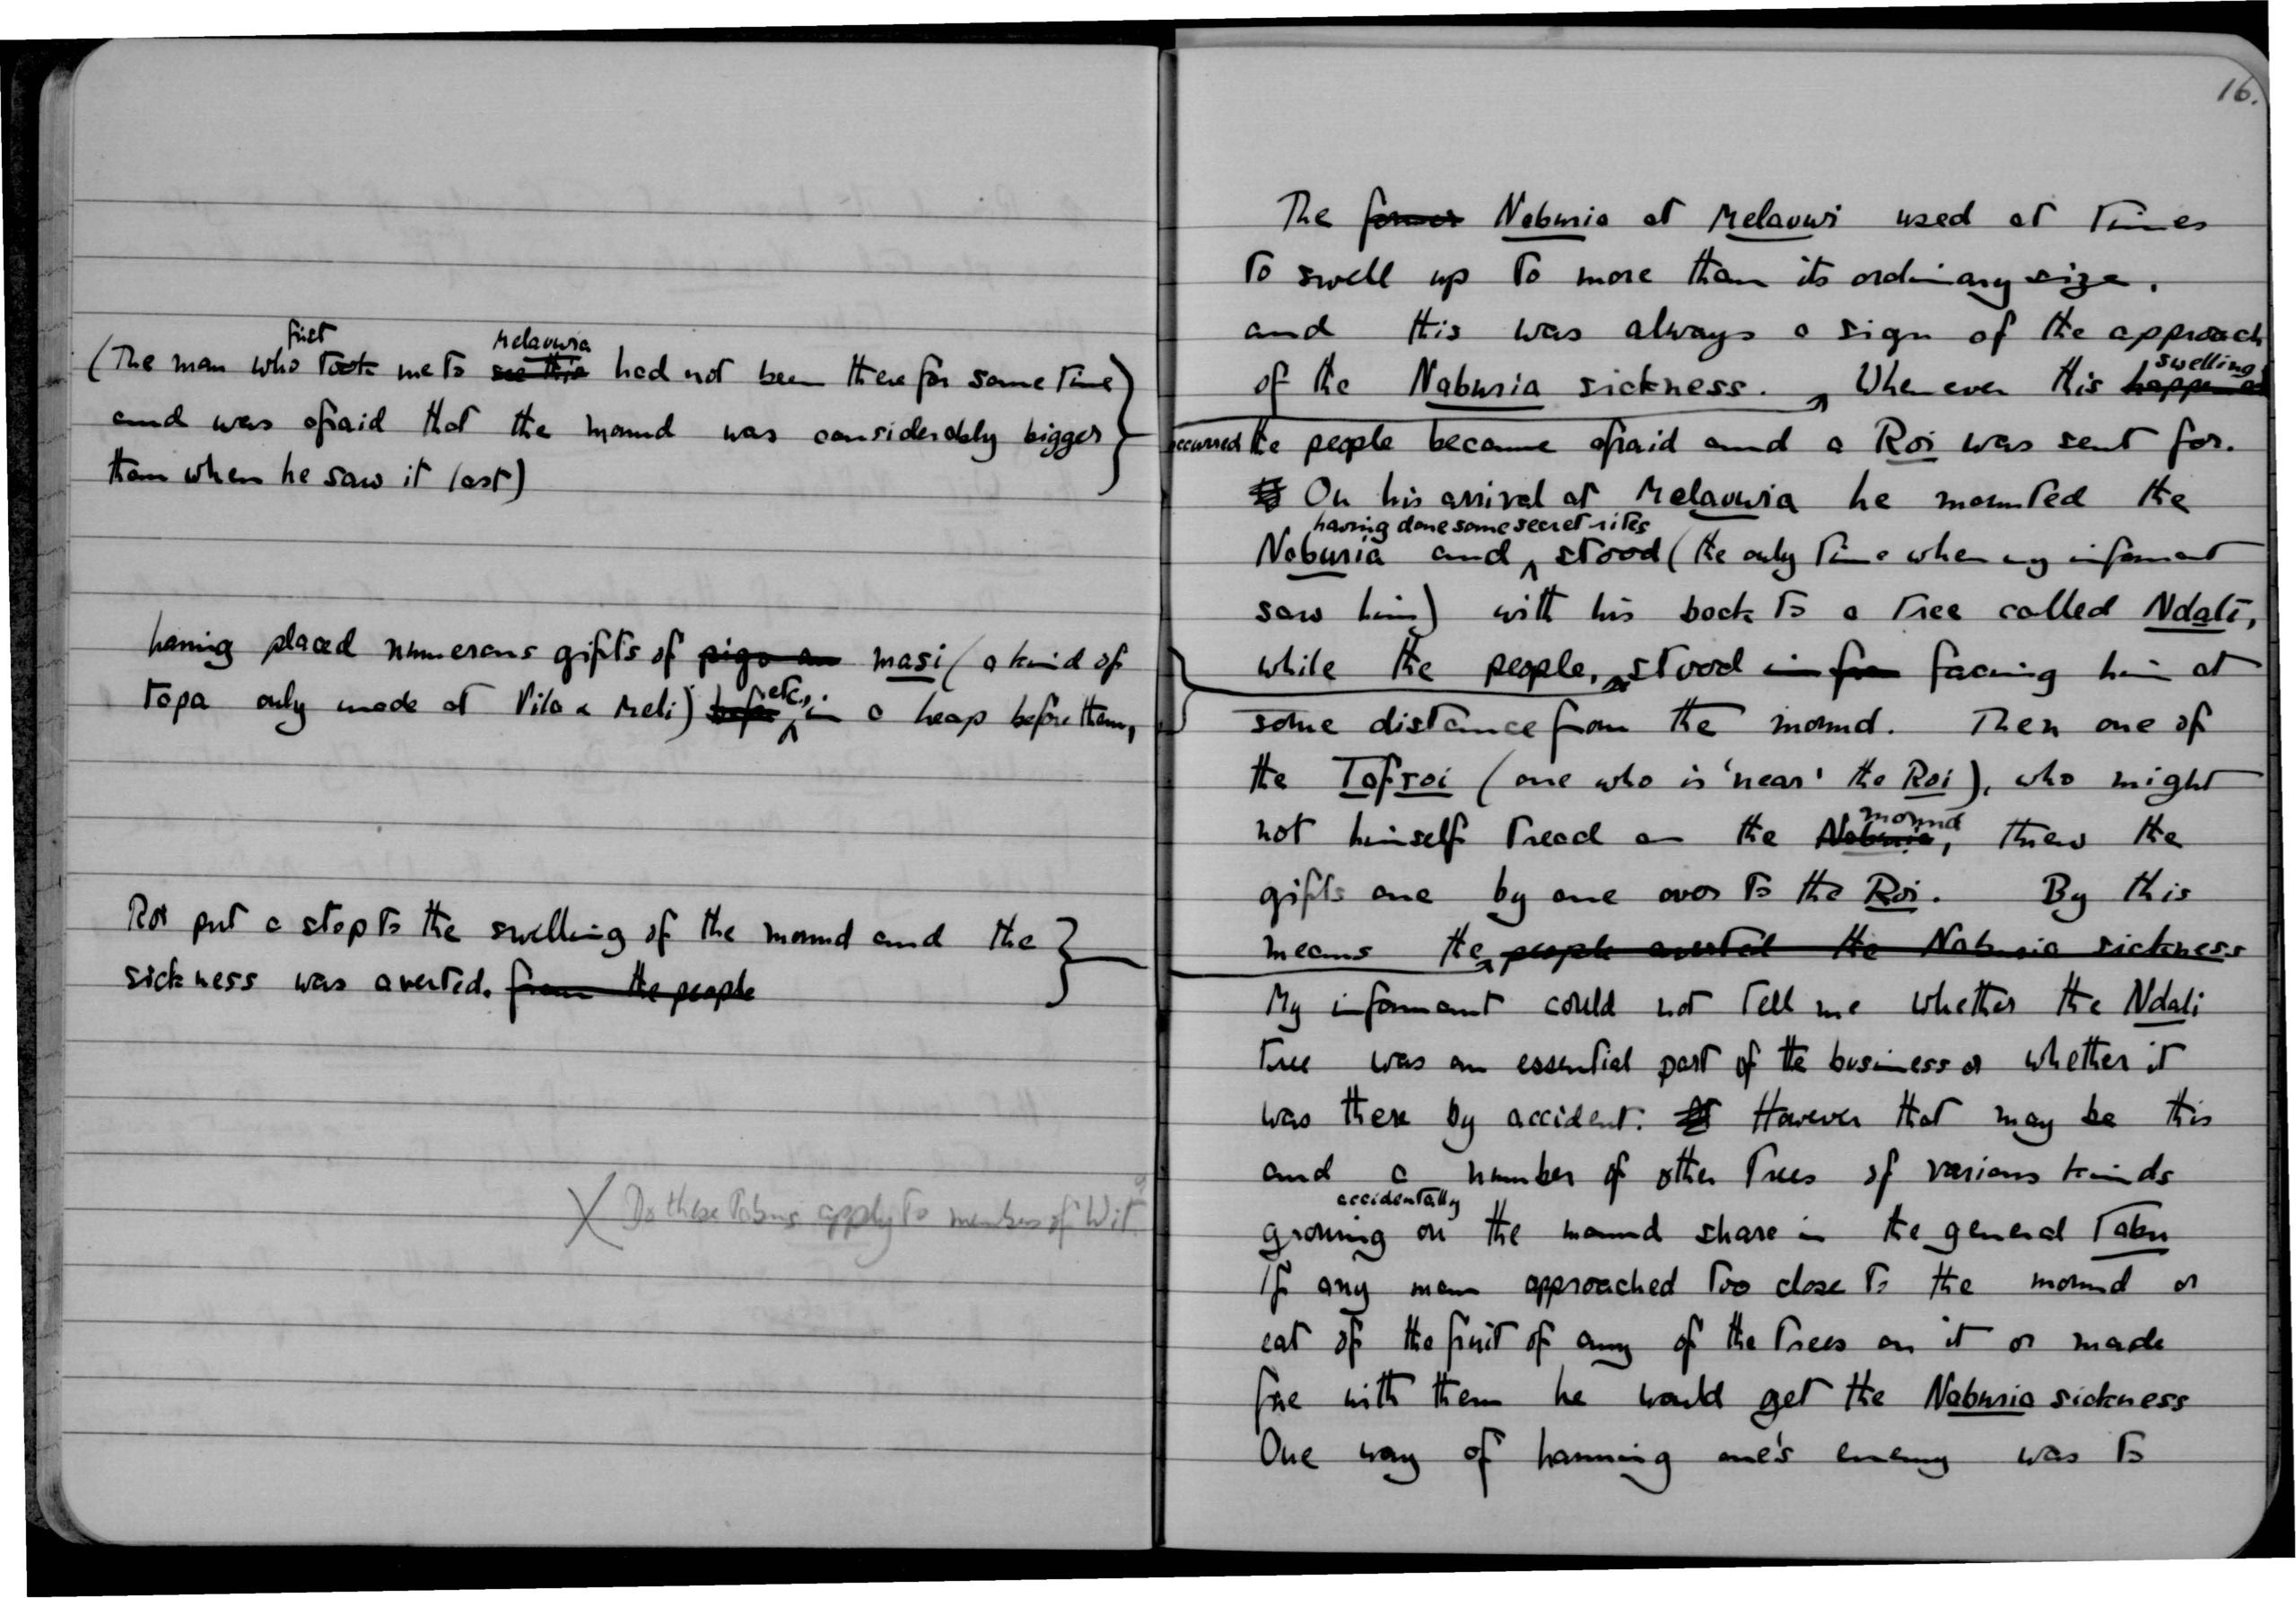 (The man who first took me to Melauwia see this had not been there for some time
and was afraid that the mound was considerably bigger
than when he saw it last)
having placed numerous gifts of pigs an masi (a kind of
tapa only made at Vila & Meli) before etc, in a heap before them,
Roi put a stop to the swelling of the mound and the
sickness was averted. from the people
X Do these tabus apply to members of Wit?
16.
The former Naburia at Melauwi used at times
to swell up to more than its ordinary size.
and this was always a sign of the approach
of the Naburia sickness. Whenever this happened swelling
occurred the people became afraid and a Roi was sent for.
On his arrival at Melauwia he mounted the
having done some secret rites
Naburia and stood (the only time when my informant
saw him) with his back to a tree called Ndali,
while the people, stood in fron facing him at
some distance from the mound. Then one of
the Tofroi (one who is 'near' the Roi), who might
not himself tread on the Naburia mound, threw the
gifts one by one over to the Roi. By this
means the people averted the Naburia sickness
My informant could not tell me whether the Ndali
tree was an essential part of the business or whether it
was there by accident. However that may be this
and a number of other trees of various kinds
accidentally
growing on the mound share in the general Tabu
If any man approached too close to the mound or
eat of the fruit of any of the trees on it or made
fire with them he would get the Naburia sickness
One way of harming one's enemy was to